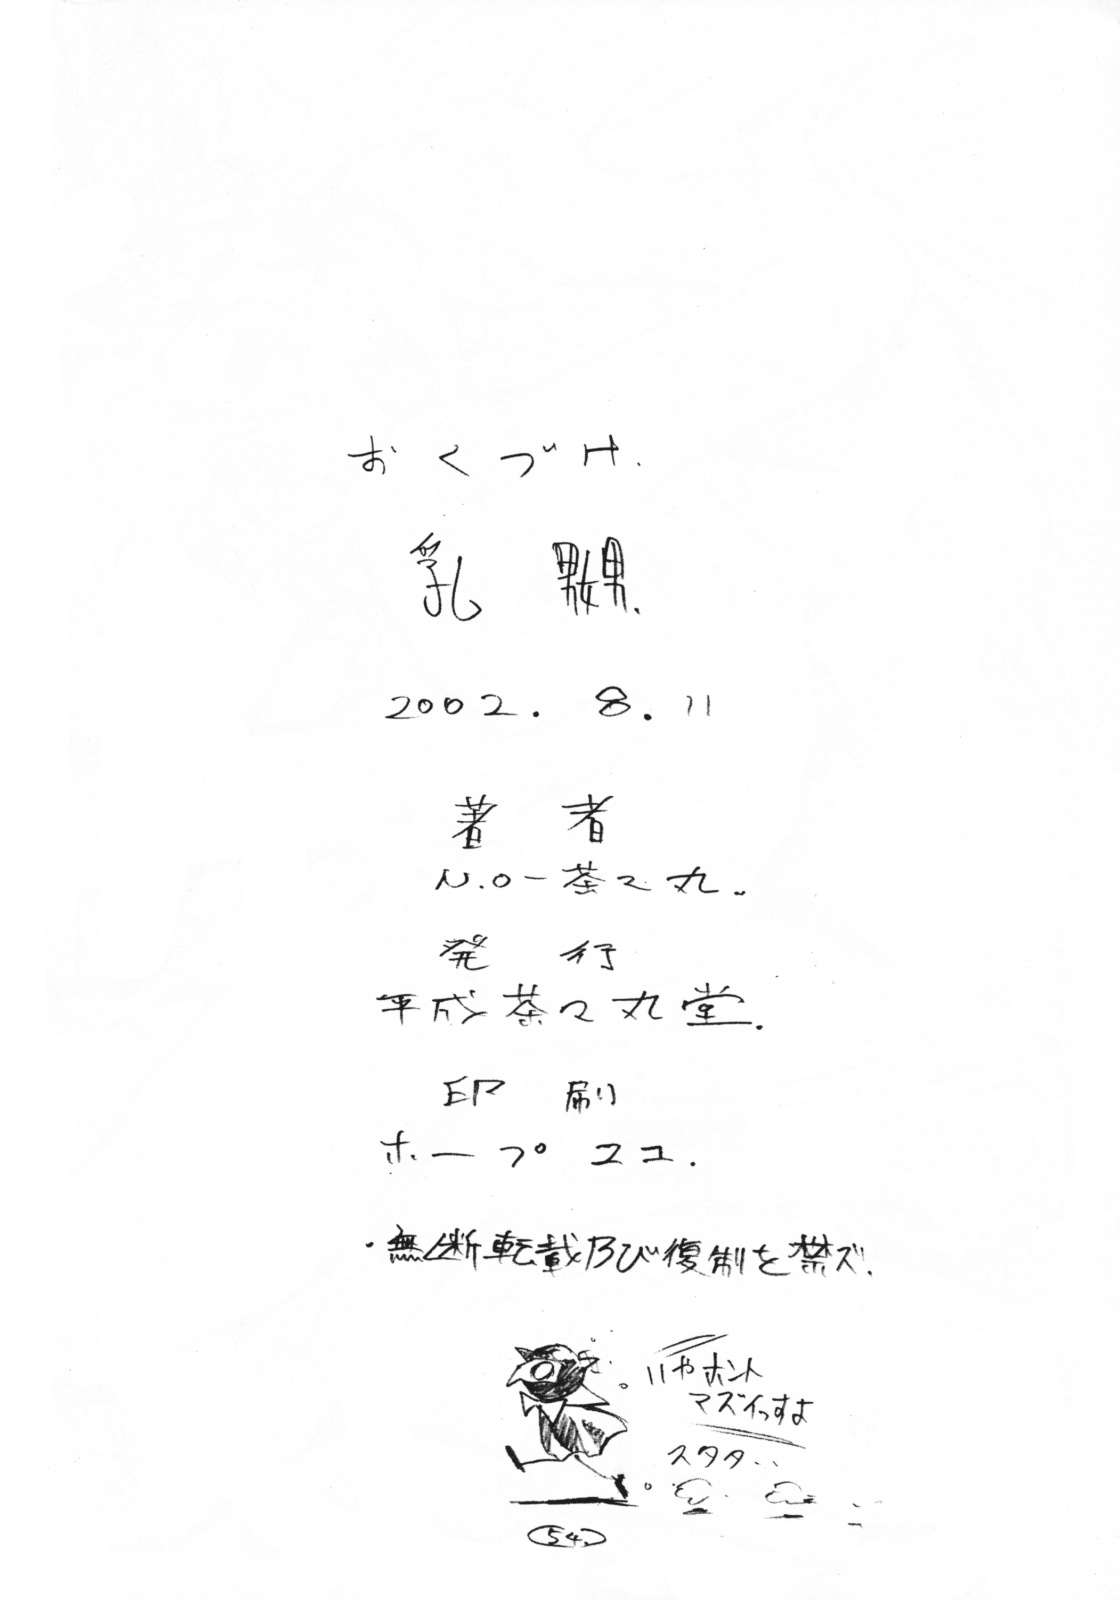 おくづけ.
乳 嬲.
2002. 8. 11
著者
N.O-茶々丸.
発行
平成茶々丸堂.
印刷
ホープユユ.
・無断転載及び復制を禁ズ.
いやホント
マズイっすよ
スタタ..
54.